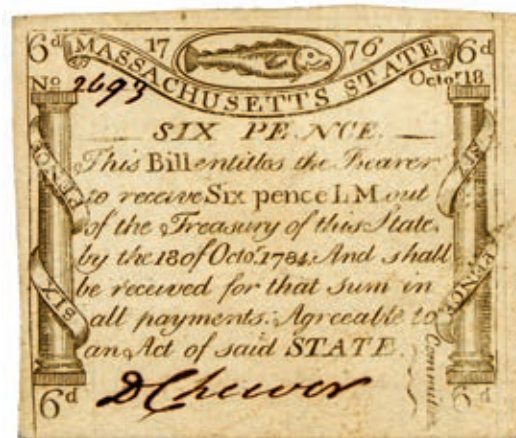 6d 17 76 6d
MASSACHUSETTS STATE
No 2693 Octor. 18
SIX PENCE.
This Bill entitles the Bearer
to receive Six pence LM. out
of the Treasury of this State.
by the 18 of Octo. 1784. And shall
be received for that sum in
all payments. Agreeable to
an Act of said STATE.
SIX PENCE
SIX PENCE
Committee
6d D Cheever 6d